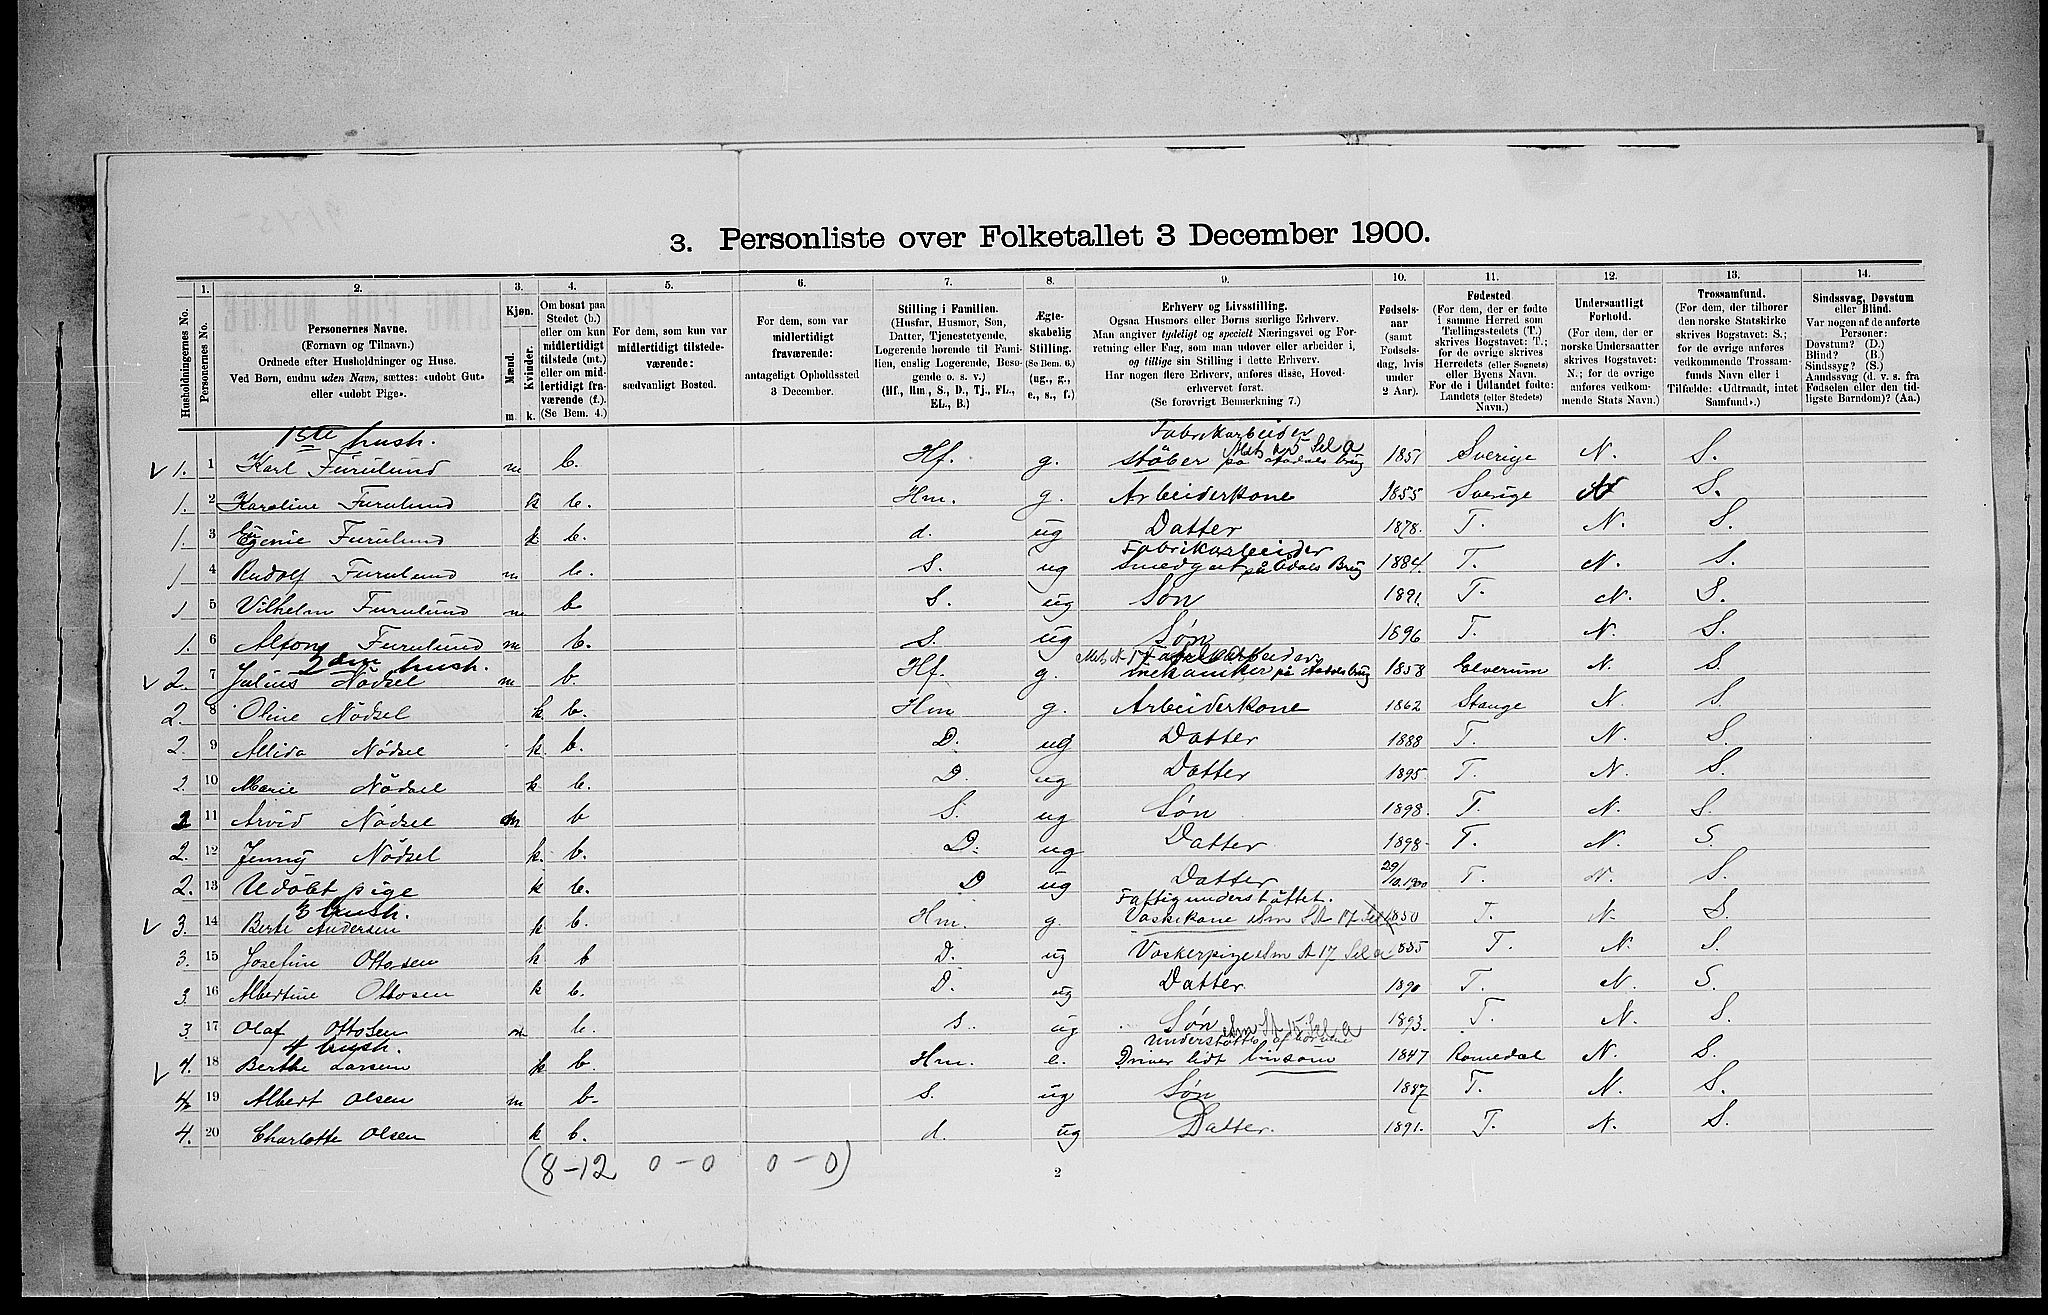 3. Personliste over Folketallet 3 December 1900.
1. 2. 3. 4. 5. 6. 7. 8. 9. 10. 11. 12. 13. 14.
Husholdningernes No.
Personernes No.
Personernes Navne.
(Fornavn og Tilnavn.)
Ordnede efter Husholdninger og Huse.
Ved Børn, endnu uden Navn, sættes: «udobt Gut»
eller «udobt Pige».
Kjøn.
Mænd. Kvinder.
m. k.
Om bosat paa
Stedet (b.)
eller om kun
midlertidigt
tilstede (mt.)
eller om mid-
lertidigt fra-
værende (f.).
(Se Bem. 4.)
For dem, som kun var
midlertidigt tilstede-
værende:
sædvanligt Bosted.
For dem, som var
midlertidigt
fraværende:
antageligt Opholdssted
3 December.
Stilling i Familien.
(Husfar, Husmor, Søn,
Datter, Tjenestetyende,
Logerende hørende til Fami-
lien, enslig Logerende, Besø-
gende o. s. v.)
(Hf., Hm., S., D., Tj., FL.,
EL., B.)
Ægte-
skabelig
Stilling.
(Se Bem. 6.)
(ug., g.,
e., s., f.)
Erhverv og Livsstilling.
Ogsaa Husmors eller Børns særlige Erhverv.
Man angiver tydeligt og specielt Næringsvei og For-
retning eller Fag, som man udøver eller arbeider i,
og tillige sin Stilling i dette Erhverv.
Har nogen flere Erhverv, anføres disse, Hoved-
erhvervet først.
(Se forøvrigt Bemærkning 7.)
Fødsels-
aar
(samt
Fødsels-
dag, hvis
under
2 Aar).
Fødested
(For dem, der er fødte
i samme Herred som
Tællingsstedets (T.)
skrives Bogstavet: T.;
for de øvrige skrives
Herredets (eller Sognets)
eller Byens Navn.
For de i Udlandet fødte:
Landets (eller Stedets)
Navn.)
Undersaatligt
Forhold.
(For dem, der er
norske Undersaatter
skrives Bogstavet:
N.; for de øvrige
anføres vedkom-
mende Stats Navn.)
Trossamfund.
(For dem, der tilhører
den norske Statskirke
skrives Bogstavet: S.;
for de øvrige anføres
vedkommende Trossam-
funds Navn eller i
Tilfælde: «Udtraadt, intet
Samfund».)
Sindssvag, Døvstum
eller Blind.
Var nogen af de anførte
Personer:
Døvstum? (D.)
Blind? (B.)
Sindssyg? (S.)
Aandssvag (d. v. s. fra
Fødselen eller den tid-
ligste Barndom)? (Aa.)
1ste hush.
Fabrikarbeider
1. 1 Karl Furulund m b. Hf. g. støber på Aadals brug 1851 Sverige N. S.
1. 2 Karoline Furulund k b. Hm. g. Arbeiderkone 1855 Sverige N S.
1. 3 Eugenie Furulund k b. d. ug Datter 1878. T. N. S.
Fabrikarbeider
1 4 Rudolf Furulund m b. S. ug Smedgut på Adals Brug 1884. T. N. S.
1 5 Vilhelm Furulund m b S. ug Søn 1891. T. N. S.
1. 6 Alfons Furulund m b. S. ug Søn 1896 T. N. S.
2den hush.
Fabrikarbeider
2. 7 Julius Nödsel m b Hf. g. mekaniker på Aadals brug 1858 Elverum N. S.
2. 8 Oline Nödsel k b. Hm g. Arbeiderkone 1862 Stange N S.
2. 9 Allida Nödsel k b. D. ug Datter 1888 T. N. S.
2. 10 Marie Nödsel k b. D. ug Datter 1895 T. N. S.
2 11 Arvid Nödsel m b S. ug Søn 1898. T. N. S.
2. 12 Jenny Nödsel k. b. D. ug Datter 1898. T. N. S.
2. 13 Udöbt pige k b. D ug Datter 29/10.1900 T. N. S.
3 hush.
Fattigunderstöttet.
3. 14 Berte Andersen k b. Hm. g. Vaskekone 1850 T. N S.
3. 15 Josefine Ottosen k b D. ug Vaskerpige 1885 T. N. S.
3. 16 Albertine Ottosen k b. D. ug Datter 1890 T. N. S.
3. 17 Olaf Ottosen m b. S. ug Søn 1893. T. N. S.
4 hush.
4. 18 Berthe Larsen k b. Hm. e. Driver lidt binsom 1847 Romedal N. S.
4. 19 Albert Olsen m b. S. ug Søn 1887 T. N. S.
4. 20 Charlotte Olsen k b. d. ug Datter. 1891. T. N. S.
(8-12 0-0 0-0)
2